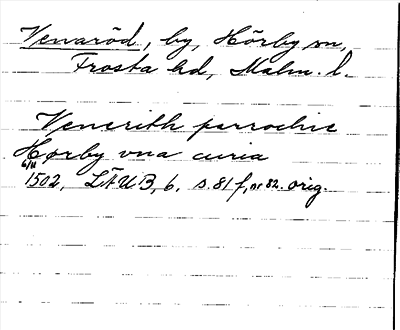 Venaröd, by, Hörby sn,
Frosta hd, Malm. l.
Venerith parrochie
Hørby vna curia
6/11
1502, LÄUB, 6, s. 81 f, nr 82. orig.